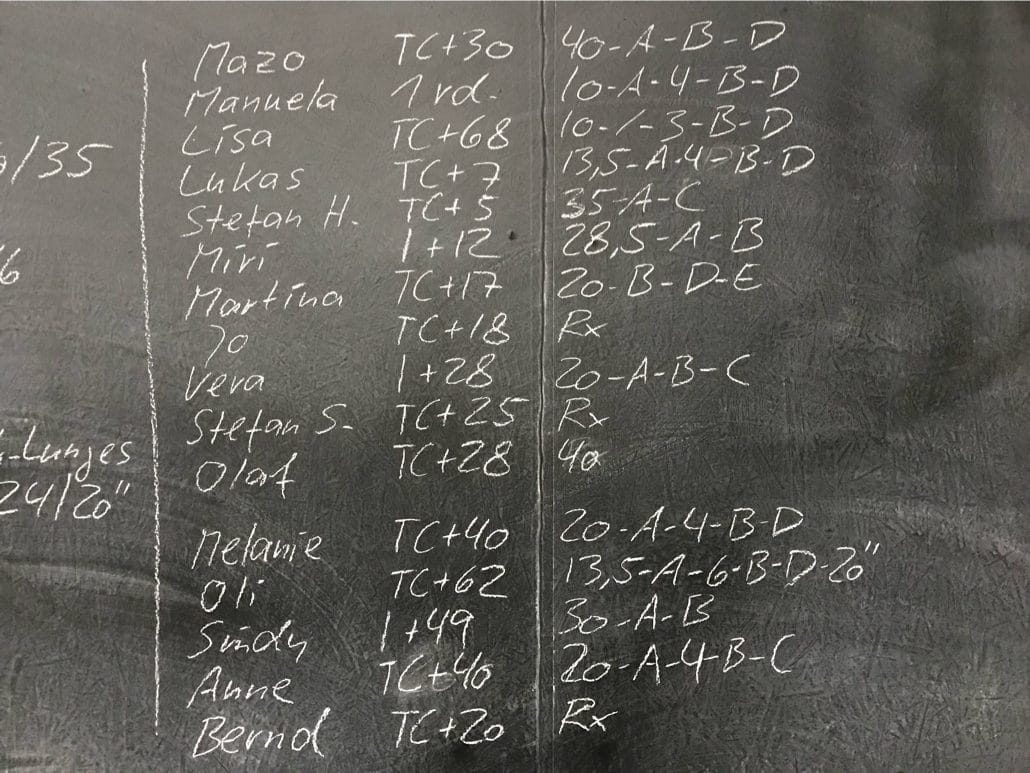 Mazo TC+30 40-A-B-D
Manuela 1 rd. 10-A-4-B-D
Lisa TC+68 10-/-3-B-D
/35
Lukas TC+7 13,5-A-4-B-D
Stefan H. TC+5 35-A-C
Miri 1+12 28,5-A-B
6
Martina TC+17 20-B-D-E
Jo TC+18 Rx
Vera 1+28 20-A-B-C
Stefan S. TC+25 Rx
-Lunges
Olaf TC+28 40
24/20"
Melanie TC+40 20-A-4-B-D
Oli TC+62 13,5-A-6-B-D-20"
Sindy 1+49 30-A-B
Anne TC+40 20-A-4-B-C
Bernd TC+20 Rx